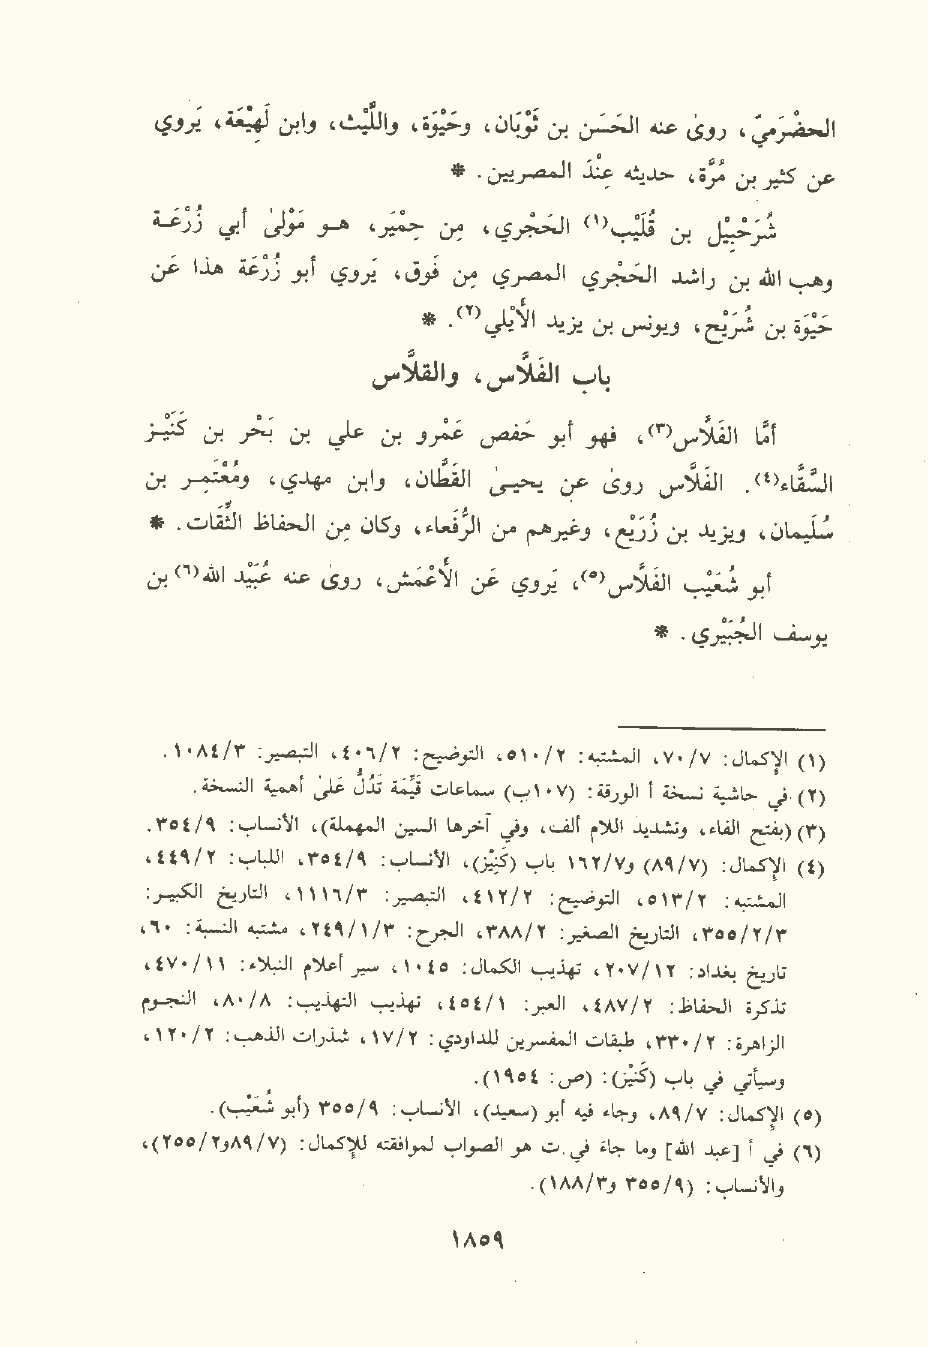 الحضْرَميّ، روىٰ عنه الحَسَن بن ثَوْبَان، وحَيْوَة، واللَّيْث، وابن لَهِيْعَة، يَروي
عن كثير بن مُرَّة، حديثه عِنْدَ المصريين. *
شُرَحْبِيْل بن قُلَيْب(١) الحَجْري، مِن حِمْيَر، هـو مَوْلىٰ أبي زُرْعَـة
وهب الله بن راشد الحَجْري المصري مِن فَوق، يَروي أبو زُرْعَة هذا عَن
حَيْوَة بن شُرَيْح، ويونس بن يزيد الأَيْلي(٢). *
باب الفَلَّاس، والقلَّاس
أمَّا الفَلَّاس(٣)، فهو أبو حَفص عَمْرو بن علي بن بَحْر بن كَنَيْـز
السَّقَّاء(٤). الفَلَّاس روىٰ عن يحيـىٰ القَطَّان، وابن مهدي، ومُعْتَمِـر بن
سُلَيمان، ويزيد بن زُرَيْع، وغيرهم من الرُّفَعاء، وكان مِن الحفاظ الثِّقَات. *
أبو شُعَيْب الفَلَّاس(٥)، يَروي عَن الأَعْمَش، روىٰ عنه عُبَيْد الله(٦) بن
يوسف الجُبَيْري. *
(١) الإكمال: ٧٠/٧، المشتبه: ٥١٠/٢، التوضيح: ٤٠٦/٢، التبصير: ١٠٨٤/٣.
(٢) في حاشية نسخة أ الورقة: (١٠٧ب) سماعات قيِّمَة تَدُلُ عَلىٰ أهمية النسخة.
(٣) (بفتح الفاء، وتشديد اللام ألف، وفي آخرها السين المهملة)، الأنساب: ٣٥٤/٩.
(٤) الإكمال: (٨٩/٧) و١٦٢/٧ باب (كَنِيْز)، الأنساب: ٣٥٤/٩، اللباب: ٤٤٩/٢،
المشتبه: ٥١٣/٢، التوضيح: ٤١٢/٢، التبصير: ١١١٦/٣، التاريخ الكبير:
٣٥٥/٢/٣، التاريخ الصغير: ٣٨٨/٢، الجرح: ٢٤٩/١/٣، مشتبه النسبة: ٦٠،
تاريخ بغداد: ٢٠٧/١٢، تهذيب الكمال: ١٠٤٥، سير أعلام النبلاء: ٤٧٠/١١،
تذكرة الحفاظ: ٤٨٧/٢، العبر: ٤٥٤/١، تهذيب التهذيب: ٨٠/٨، النجـوم
الزاهرة: ٣٣٠/٢، طبقات المفسرين للداودي: ١٧/٢، شذرات الذهب: ١٢٠/٢،
وسيأتي في باب (كَنِيْز): (ص: ١٩٥٤).
(٥) الإكمال: ٨٩/٧، وجاء فيه أبو (سعيد)، الأنساب: ٣٥٥/٩ (أبو شُعَيْب).
(٦) في أ [عبد الله] وما جاءَ في ت هو الصواب لموافقته للإكمال: (٨٩/٧و٢٥٥/٢)،
والأنساب: (٣٥٥/٩ و١٨٨/٣).
١٨٥٩